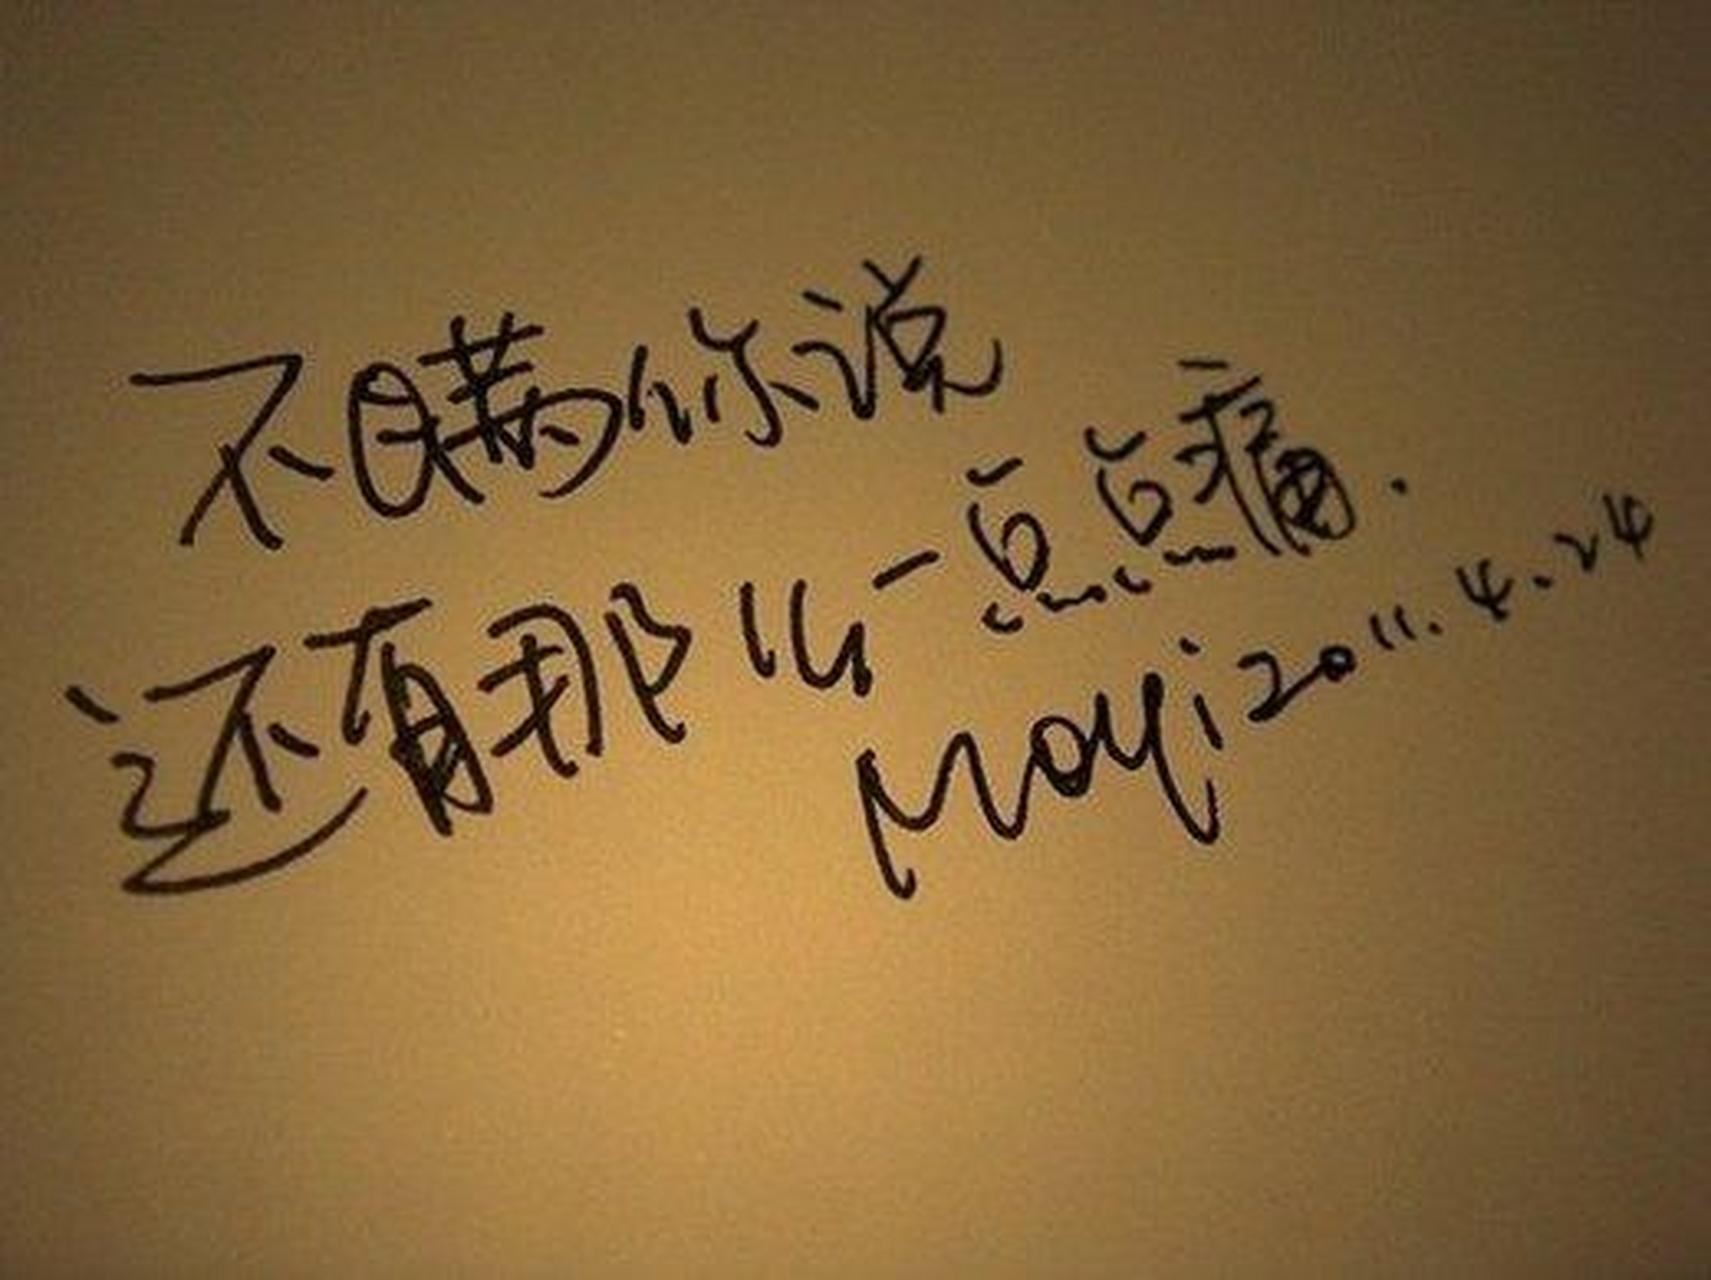 不瞒你说
还有那么一点点痛.
Mayi 2011.4.24